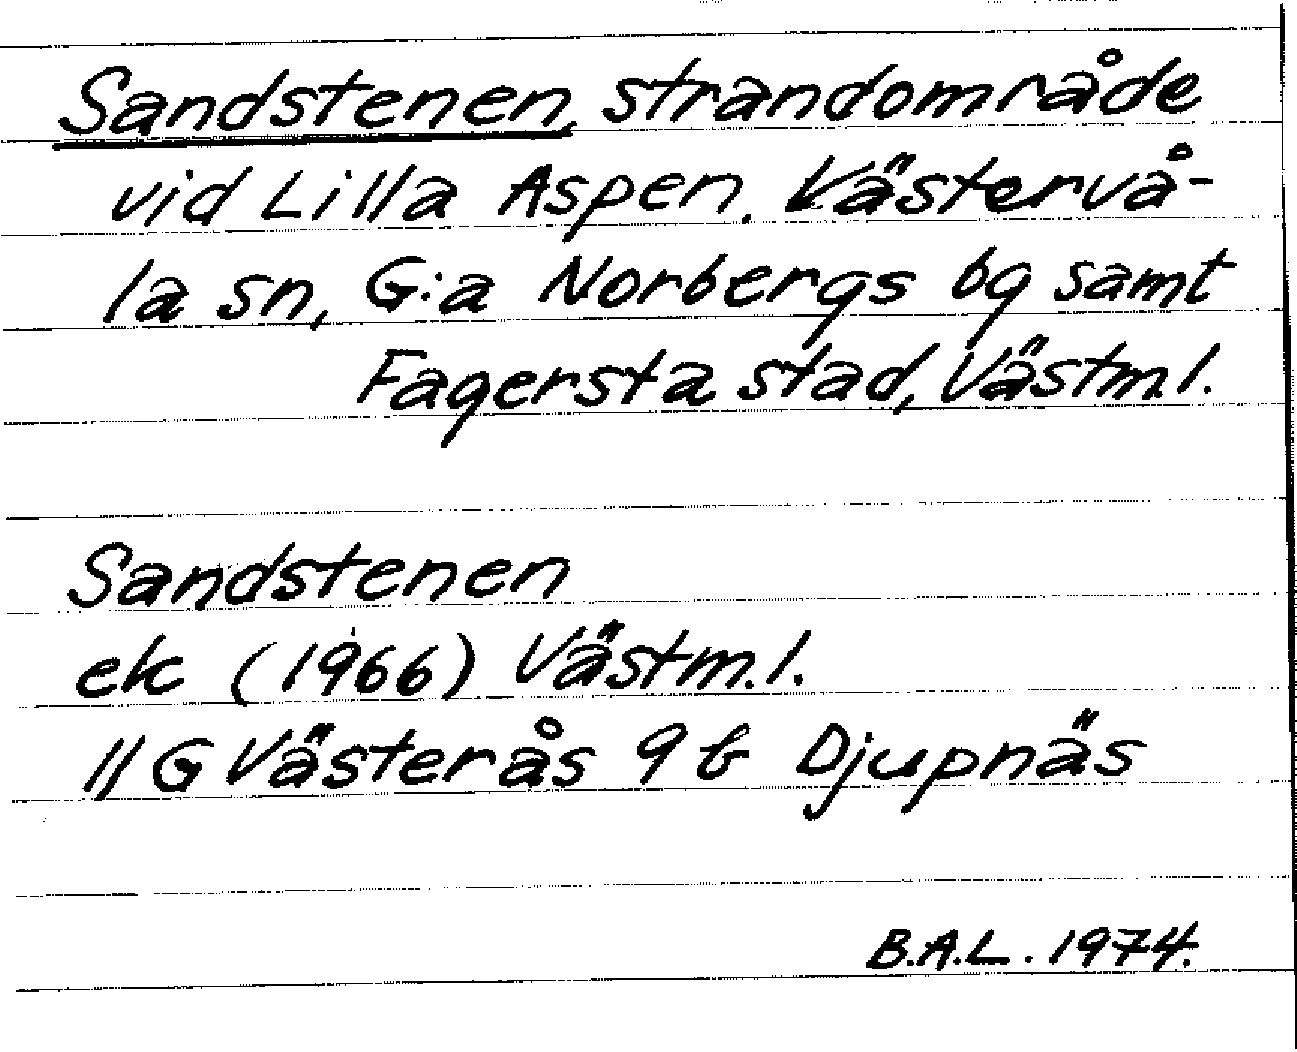 Sandstenen, strandområde
vid Lilla Aspen. Västervå-
la sn, G:a Norbergs bg samt
Fagersta stad, Västm.l.
Sandstenen
ek (1966) Västm.l.
11 G Västerås 9 b Djupnäs
B.A.L. 1974.